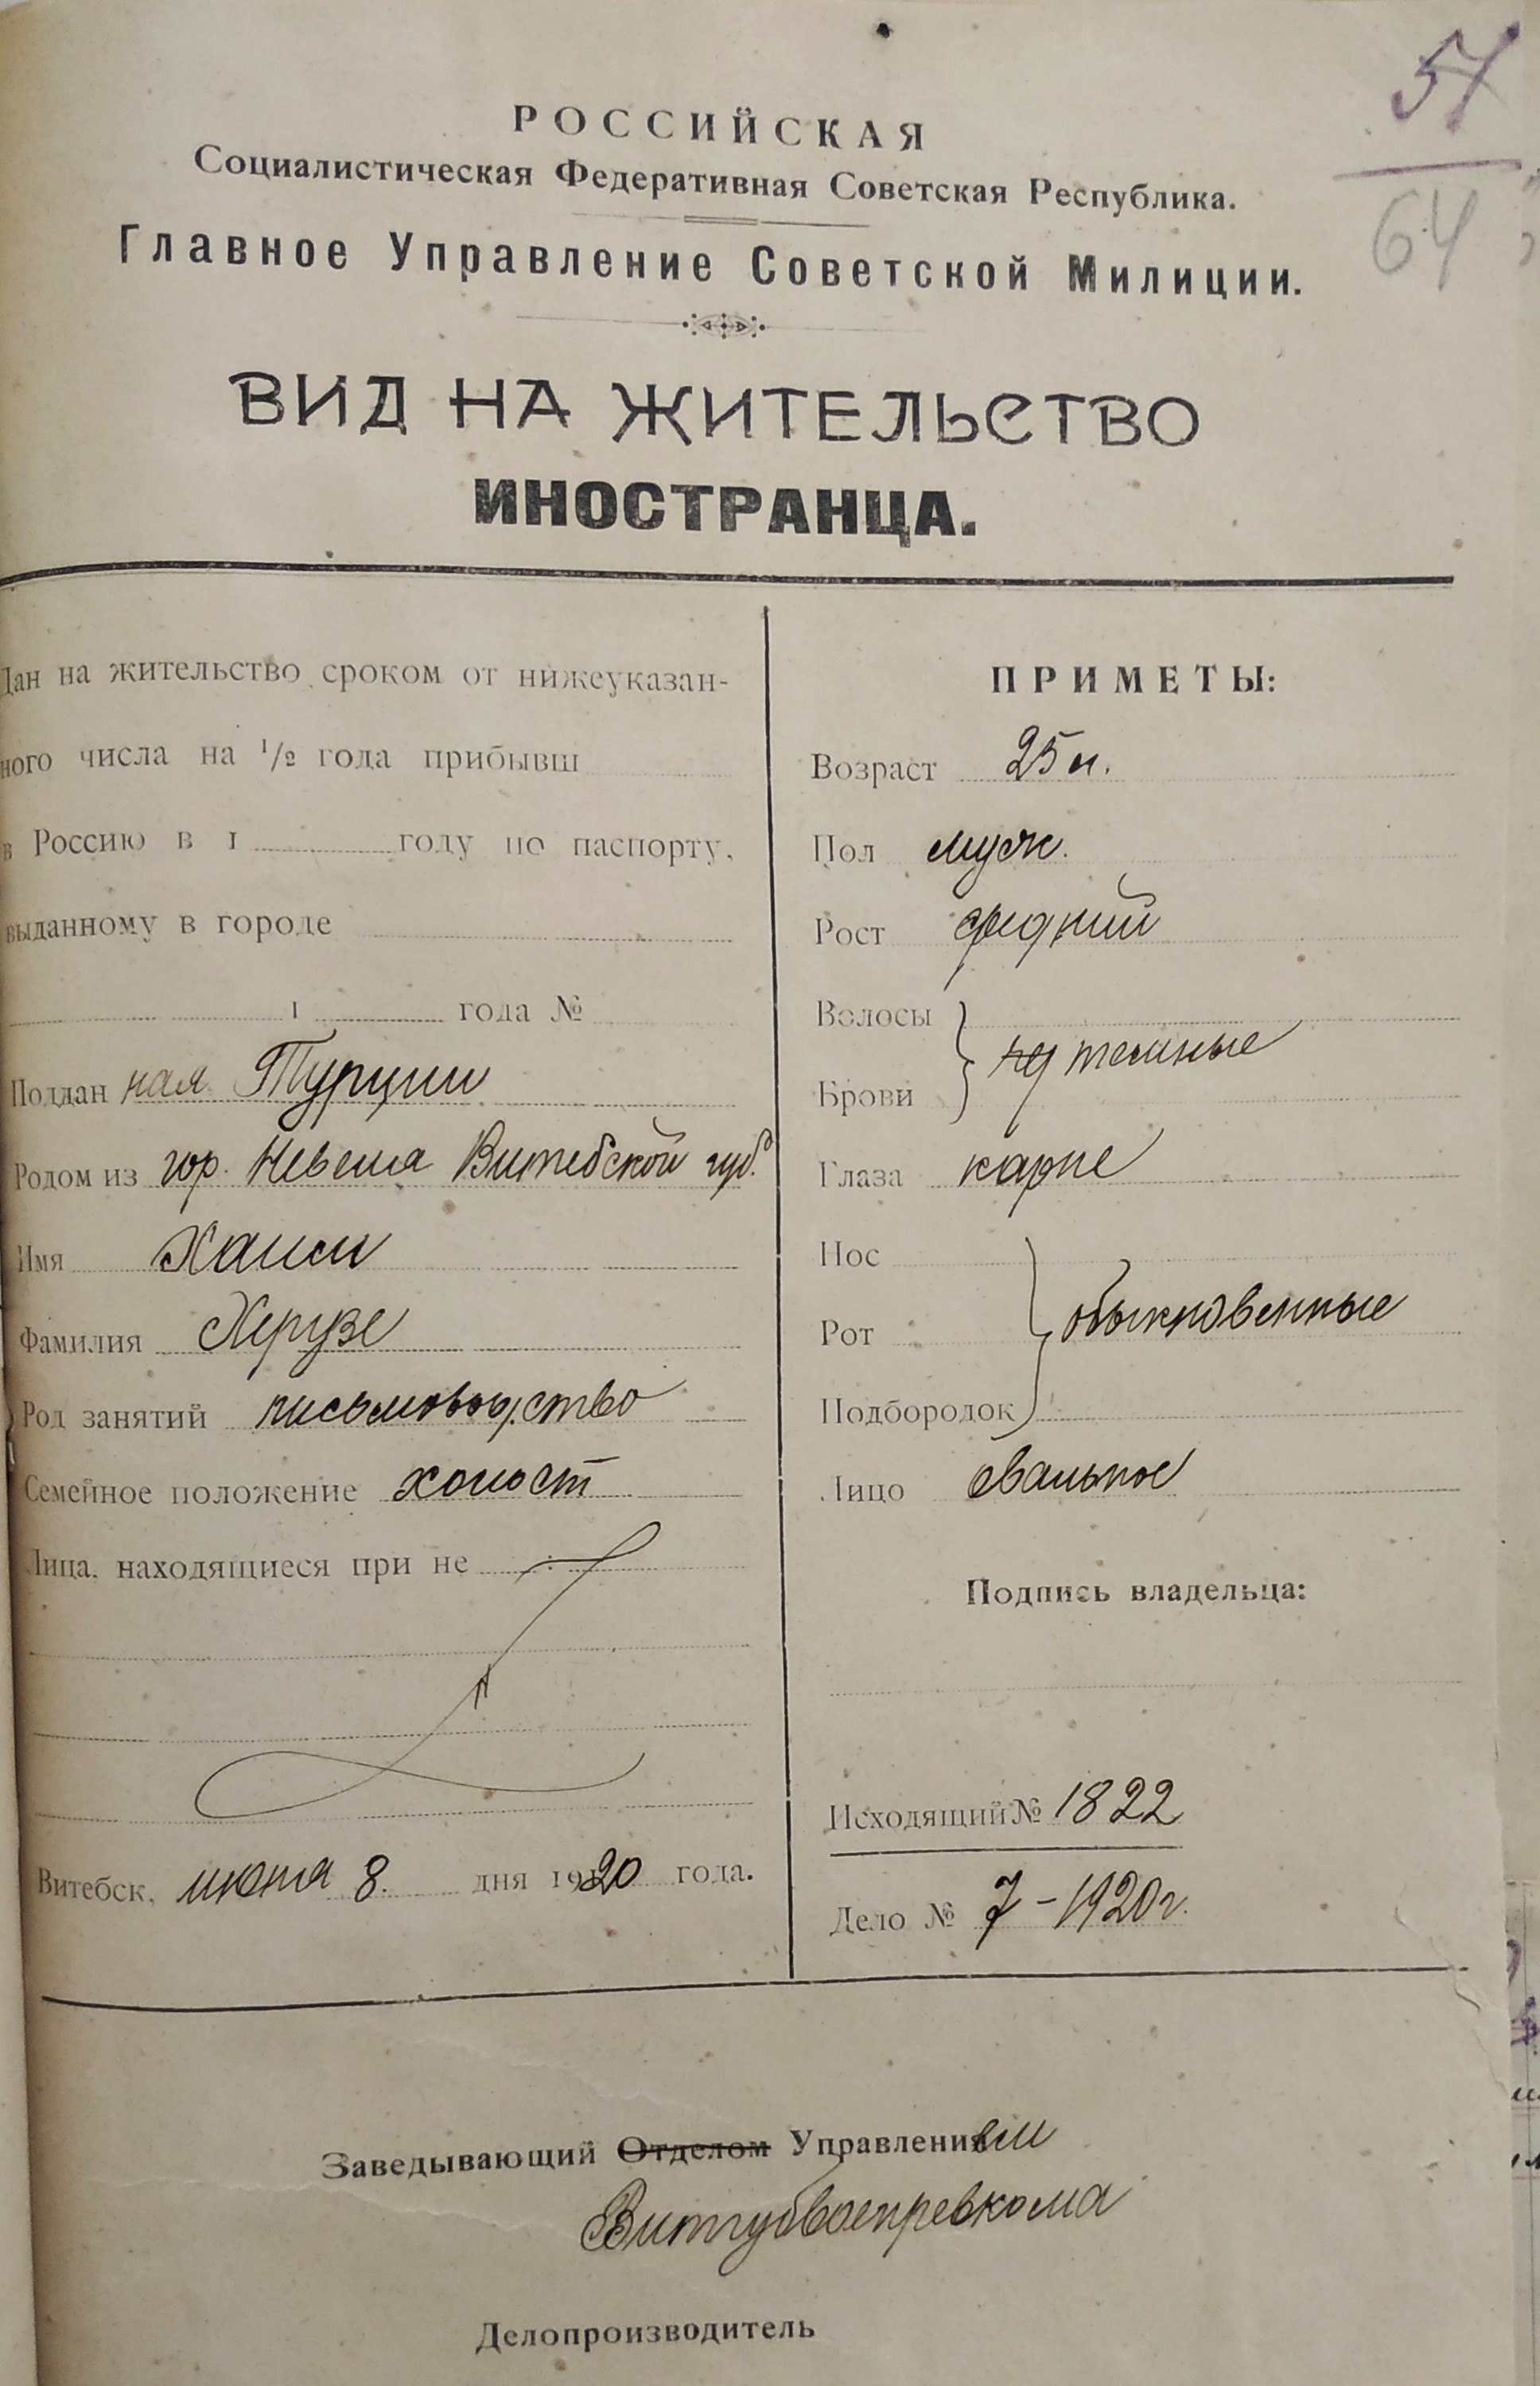 57
64
РОССИЙСКАЯ
Социалистическая Федеративная Советская Республика.
Главное Управление Советской Милиции.
ВИД НА ЖИТЕЛЬСТВО
ИНОСТРАНЦА.
Дан на жительство сроком от нижеуказан-
ного числа на 1/2 года прибывш
в Россию в 1 году по паспорту,
выданному в городе
1 года №
Поддан ная Турции
Родом из гор. Невеля Витебской губ.
Имя Хаим
Фамилия
Род занятий письмоводство
Семейное положение холост
Лица, находящиеся при не
Витебск, июня 8. дня 1920 года.
ПРИМЕТЫ:
Возраст 25 л.
Пол муж.
Рост средний
Волосы
Брови темные
Глаза карие
Нос
Рот обыкновенные
Подбородок
Лицо овальное
Подпись владельца:
Исходящий № 1822
Дело № 7-1920г.
Заведывающий Отделом Управлением
Витгубвоенревкома
Делопроизводитель